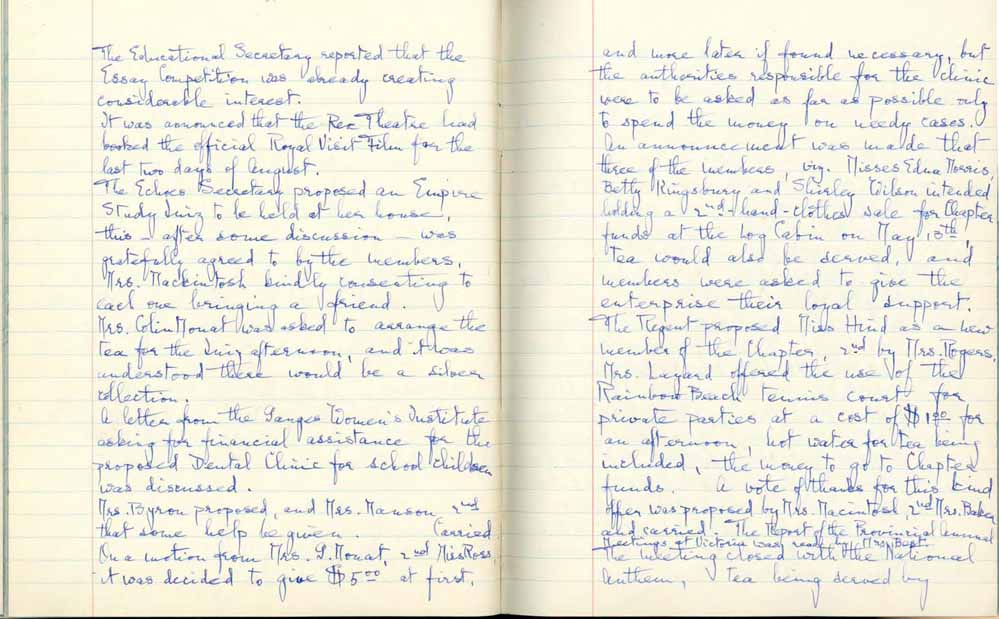 The Educational Secretary reported that the
Essay Competition was already creating
considerable interest.
It was announced that the Rex Theatre had
booked the official Royal Visit Film for the
last two days of August.
The Echoes Secretary proposed an Empire
Study Quiz to be held at her house,
this - after some discussion - was
gratefully agreed to by the members,
Mrs. Mackintosh kindly consenting to
each one bringing a friend.
Mrs. Colin Mouat was asked to arrange the
tea for the Quiz afternoon, and it was
understood there would be a silver
collection.
A letter from the Ganges Women's Institute
asking for financial assistance for the
proposed Dental Clinic for school children
was discussed.
Mrs. Byron proposed, and Mrs. Manson 2nd
that some help be given. Carried
On a motion from Mrs. G. Mouat, 2nd Miss Ross,
it was decided to give $5.00 at first,
and more later if found necessary, but
the authorities responsible for the clinic
were to be asked as far as possible only
to spend the money on needy cases.
An announcement was made that
three of the members, viz. Misses Edna Morris,
Betty Kingsbury and Shirley Wilson intended
holding a 2nd-hand-clothes sale for Chapter
funds at the Log Cabin on May 13th,
Tea would also be served, and
members were asked to give the
enterprise their loyal support.
The Regent proposed Miss Hind as a new
member of the Chapter, 2nd by Mrs. Rogers,
Mrs. Layard offered the use of the
Rainbow Beach tennis court for
private parties at a cost of $1.00 for
an afternoon, hot water for tea being
included, the money to go to Chapter
funds. A vote of thanks for this kind
offer was proposed by Mrs. Macintosh, 2nd Mrs. Baker
and carried. The Report of the Provincial Annual
Meetings at Victoria was read by Mrs. Best.
The meeting closed with the National
Anthem, tea being served by